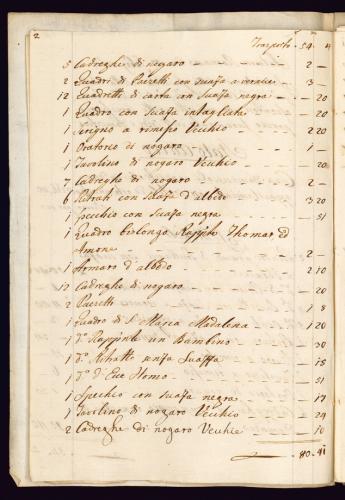 2
Trasporto - 54 - 4
5 Cadreghe di nogaro - 2 -
2 Quadri di Paezetti con suasa a vernice - 3 -
12 Quadretti di carta con suasa negra - - 20
1 Quadro con suasa intagliata - - 20
1 Scrigno a rimesso Vecchio 2 20
1 Oratorio di nogaro - 1 -
1 Tavolino di nogaro Vecchio - - 20
7 Cadreghe di nogaro - 2 -
6 Ritrati con suasa d'albeo - 3 20
1 Specchio con suasa negra - - 51
1 Quadro berlongo Rappte Thomar ed
Amone - 2 -
1 Armaro d'albeo - 2 10
12 Cadreghe di nogaro - - 20
2 Paezetti - 1 8
1 Quadro di S Maria Madalena - 1 20
1 do Rappnte un Bambino - - 30
1 do Ritratti senza suassa - - 15
1 do d'Ecce Homo - - 51
1 Spechio con suasa negra - - 17
1 Tavolino di nogaro Vecchio - - 24
2 Cadreghe di nogaro Vechie - - 10
80 - 41